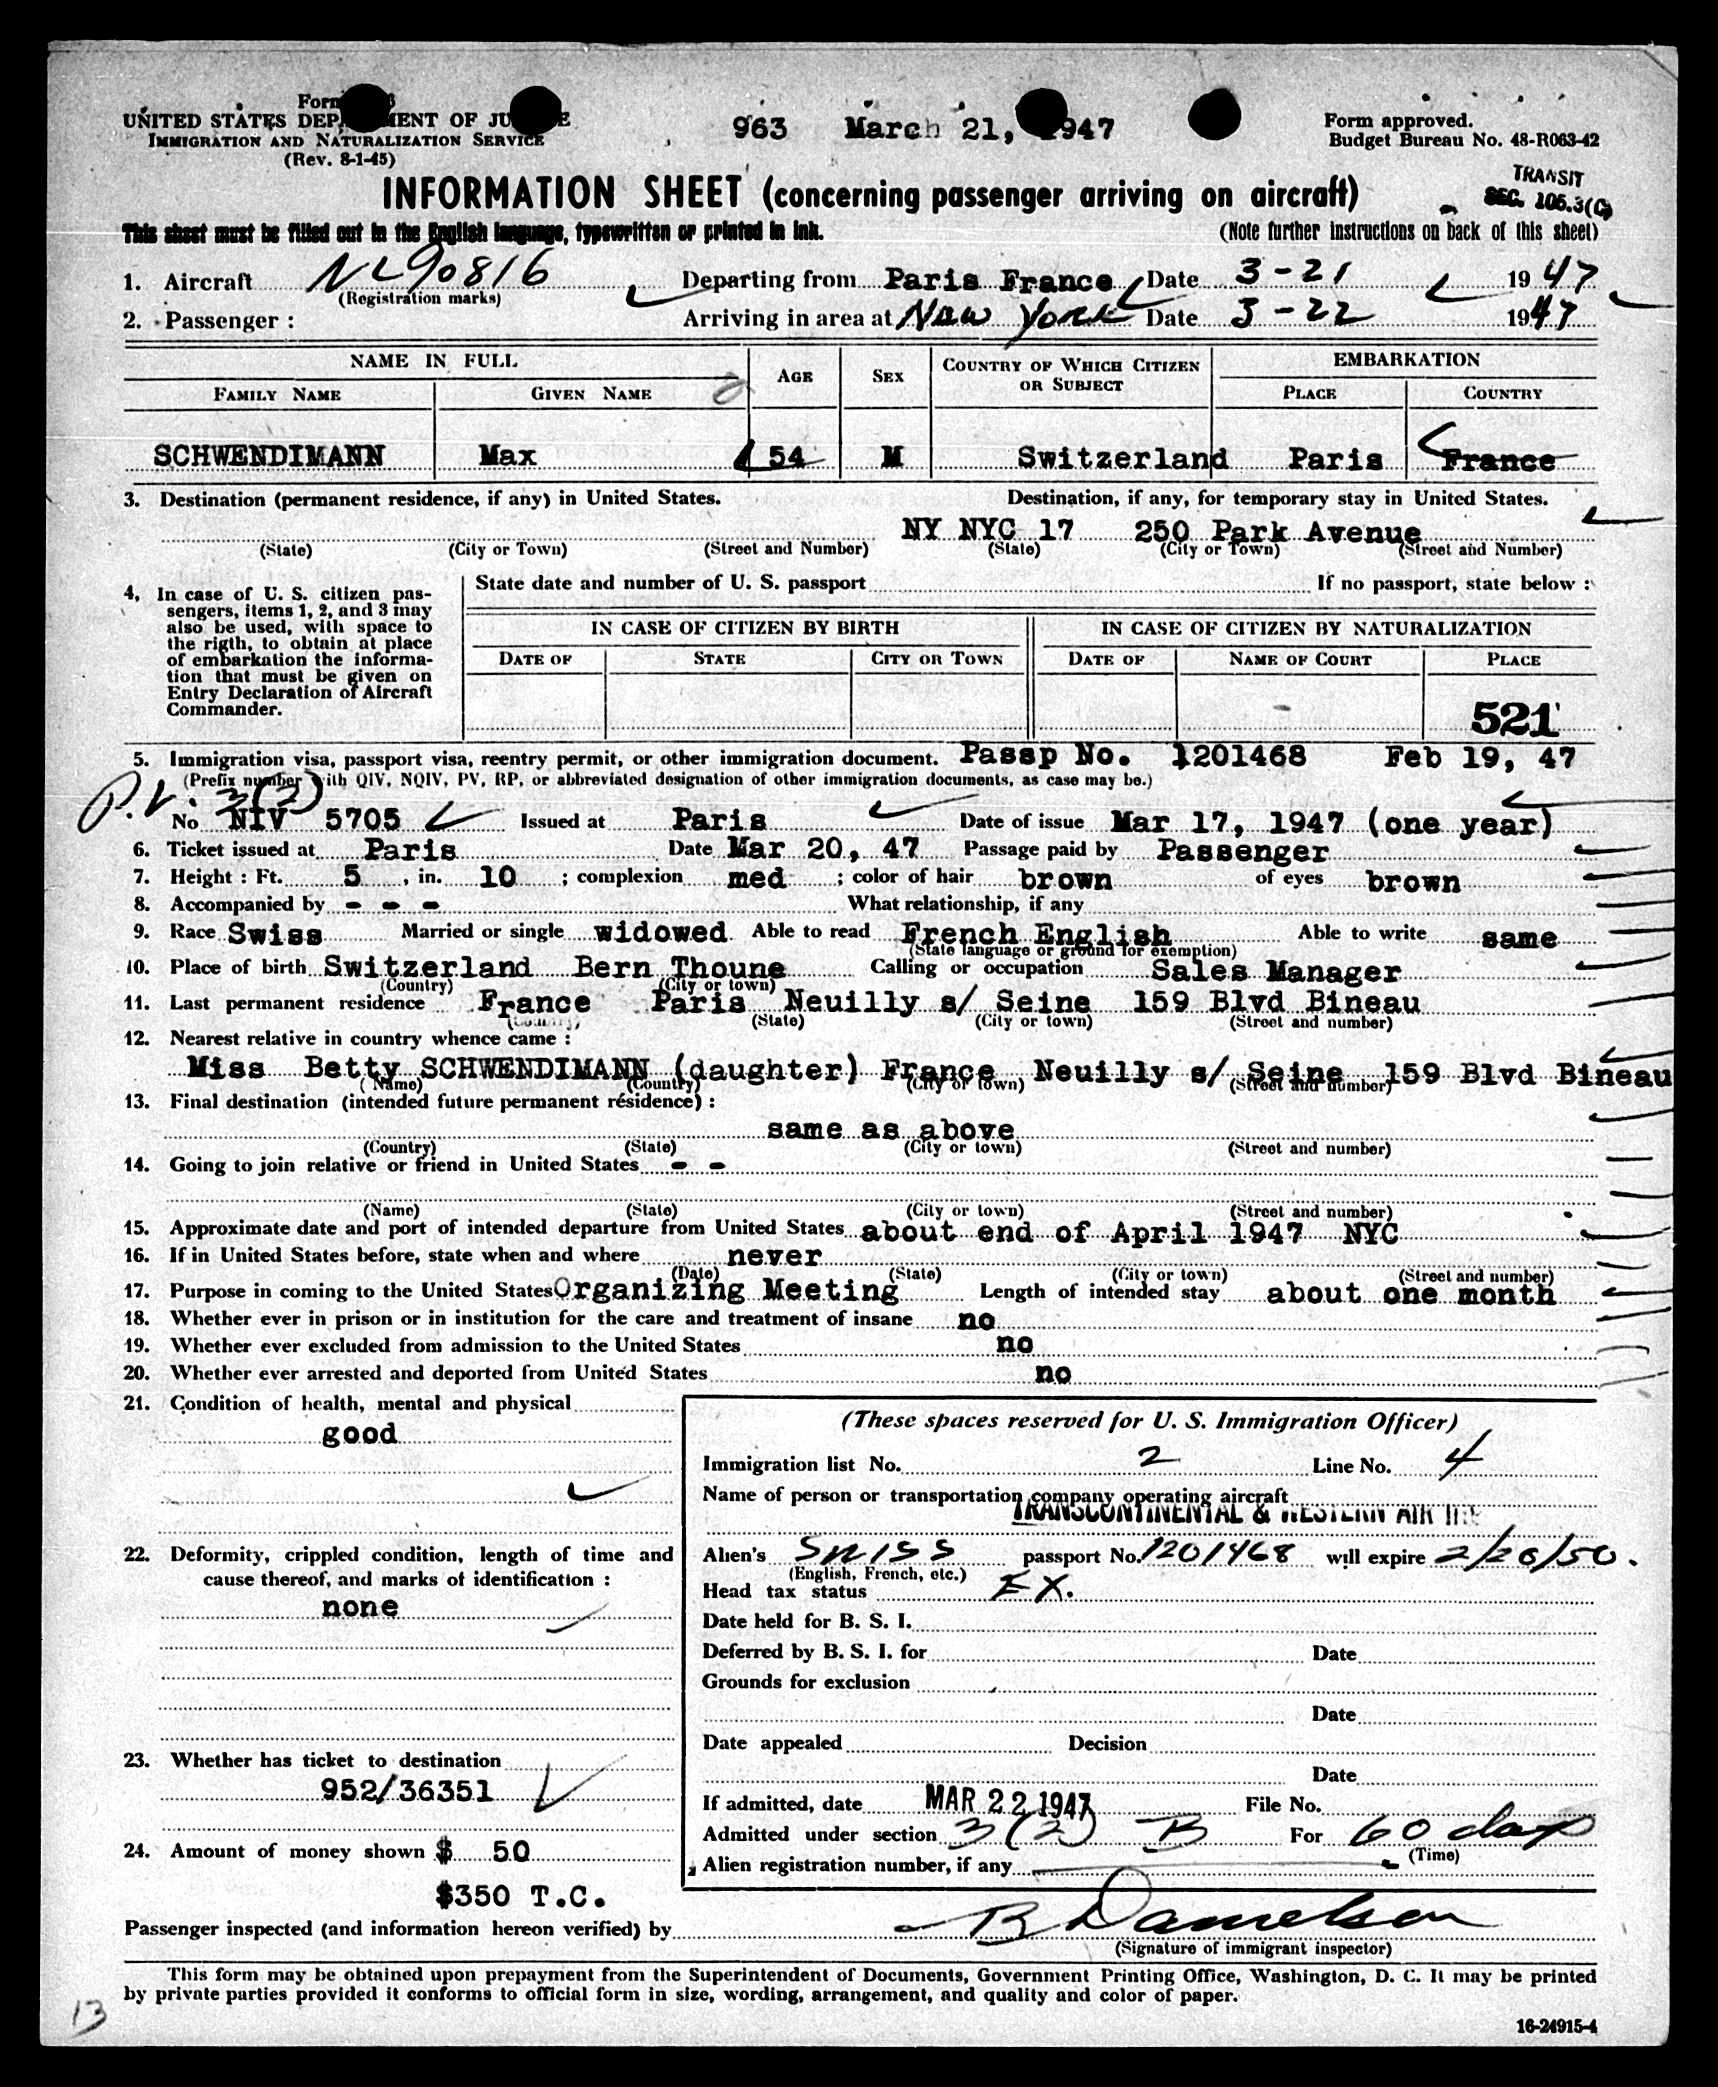 Form
UNITED STATES DEPARTMENT OF JUSTICE
IMMIGRATION AND NATURALIZATION SERVICE
(Rev. 8-1-45)
963 March 21, 1947
Form approved.
Budget Bureau No. 48-R063-42
TRANSIT
SEC. 105.3(C)
INFORMATION SHEET (concerning passenger arriving on aircraft)
This sheet must be filled out in the English language, typewritten or printed in ink. (Note further instructions on back of this sheet)
1. Aircraft NL90816 Departing from Paris France Date 3-21 1947
(Registration marks)
2. Passenger : Arriving in area at New York Date 3-22 1947
NAME IN FULL AGE SEX COUNTRY OF WHICH CITIZEN OR SUBJECT EMBARKATION
FAMILY NAME GIVEN NAME PLACE COUNTRY
SCHWENDIMANN Max 54 M Switzerland Paris France
3. Destination (permanent residence, if any) in United States. Destination, if any, for temporary stay in United States.
NY NYC 17 250 Park Avenue
(State) (City or Town) (Street and Number) (State) (City or Town) (Street and Number)
4. In case of U. S. citizen pas-
sengers, items 1, 2, and 3 may
also be used, with space to
the rigth, to obtain at place
of embarkation the informa-
tion that must be given on
Entry Declaration of Aircraft
Commander.
State date and number of U. S. passport If no passport, state below :
IN CASE OF CITIZEN BY BIRTH IN CASE OF CITIZEN BY NATURALIZATION
DATE OF STATE CITY OR TOWN DATE OF NAME OF COURT PLACE
521
5. Immigration visa, passport visa, reentry permit, or other immigration document. Passp No. 1201468 Feb 19, 47
(Prefix number with QIV, NQIV, PV, RP, or abbreviated designation of other immigration documents, as case may be.)
P.V. 3(2)
No NIV 5705 Issued at Paris Date of issue Mar 17, 1947 (one year)
6. Ticket issued at Paris Date Mar 20, 47 Passage paid by Passenger
7. Height : Ft. 5 , in. 10 ; complexion med ; color of hair brown of eyes brown
8. Accompanied by - - - What relationship, if any
9. Race Swiss Married or single widowed Able to read French English Able to write same
(State language or ground for exemption)
10. Place of birth Switzerland Bern Thoune Calling or occupation Sales Manager
(Country) (City or town)
11. Last permanent residence France Paris Neuilly s/ Seine 159 Blvd Bineau
(Country) (State) (City or town) (Street and number)
12. Nearest relative in country whence came :
Miss Betty SCHWENDIMANN (daughter) France Neuilly s/ Seine 159 Blvd Bineau
(Name) (Country) (City or town) (Street and number)
13. Final destination (intended future permanent résidence) :
same as above
(Country) (State) (City or town) (Street and number)
14. Going to join relative or friend in United States - -
(Name) (State) (City or town) (Street and number)
15. Approximate date and port of intended departure from United States about end of April 1947 NYC
16. If in United States before, state when and where never
(Date) (State) (City or town) (Street and number)
17. Purpose in coming to the United States Organizing Meeting Length of intended stay about one month
18. Whether ever in prison or in institution for the care and treatment of insane no
19. Whether ever excluded from admission to the United States no
20. Whether ever arrested and deported from United States no
21. Condition of health, mental and physical
good
(These spaces reserved for U. S. Immigration Officer)
Immigration list No. 2 Line No. 4
Name of person or transportation company operating aircraft
TRANSCONTINENTAL & WESTERN AIR INC
22. Deformity, crippled condition, length of time and
cause thereof, and marks of identification :
none
Alien's Swiss passport No. 1201468 will expire 2/20/50.
(English, French, etc.)
Head tax status EX.
Date held for B. S. I.
Deferred by B. S. I. for Date
Grounds for exclusion
Date
Date appealed Decision
Date
23. Whether has ticket to destination
952/36351
If admitted, date MAR 22 1947 File No.
Admitted under section 3(2) B For 60 days
(Time)
24. Amount of money shown $ 50
Alien registration number, if any
$350 T.C.
Passenger inspected (and information hereon verified) by B Danielson
(Signature of immigrant inspector)
This form may be obtained upon prepayment from the Superintendent of Documents, Government Printing Office, Washington, D. C. It may be printed
by private parties provided it conforms to official form in size, wording, arrangement, and quality and color of paper.
13
16-24915-4